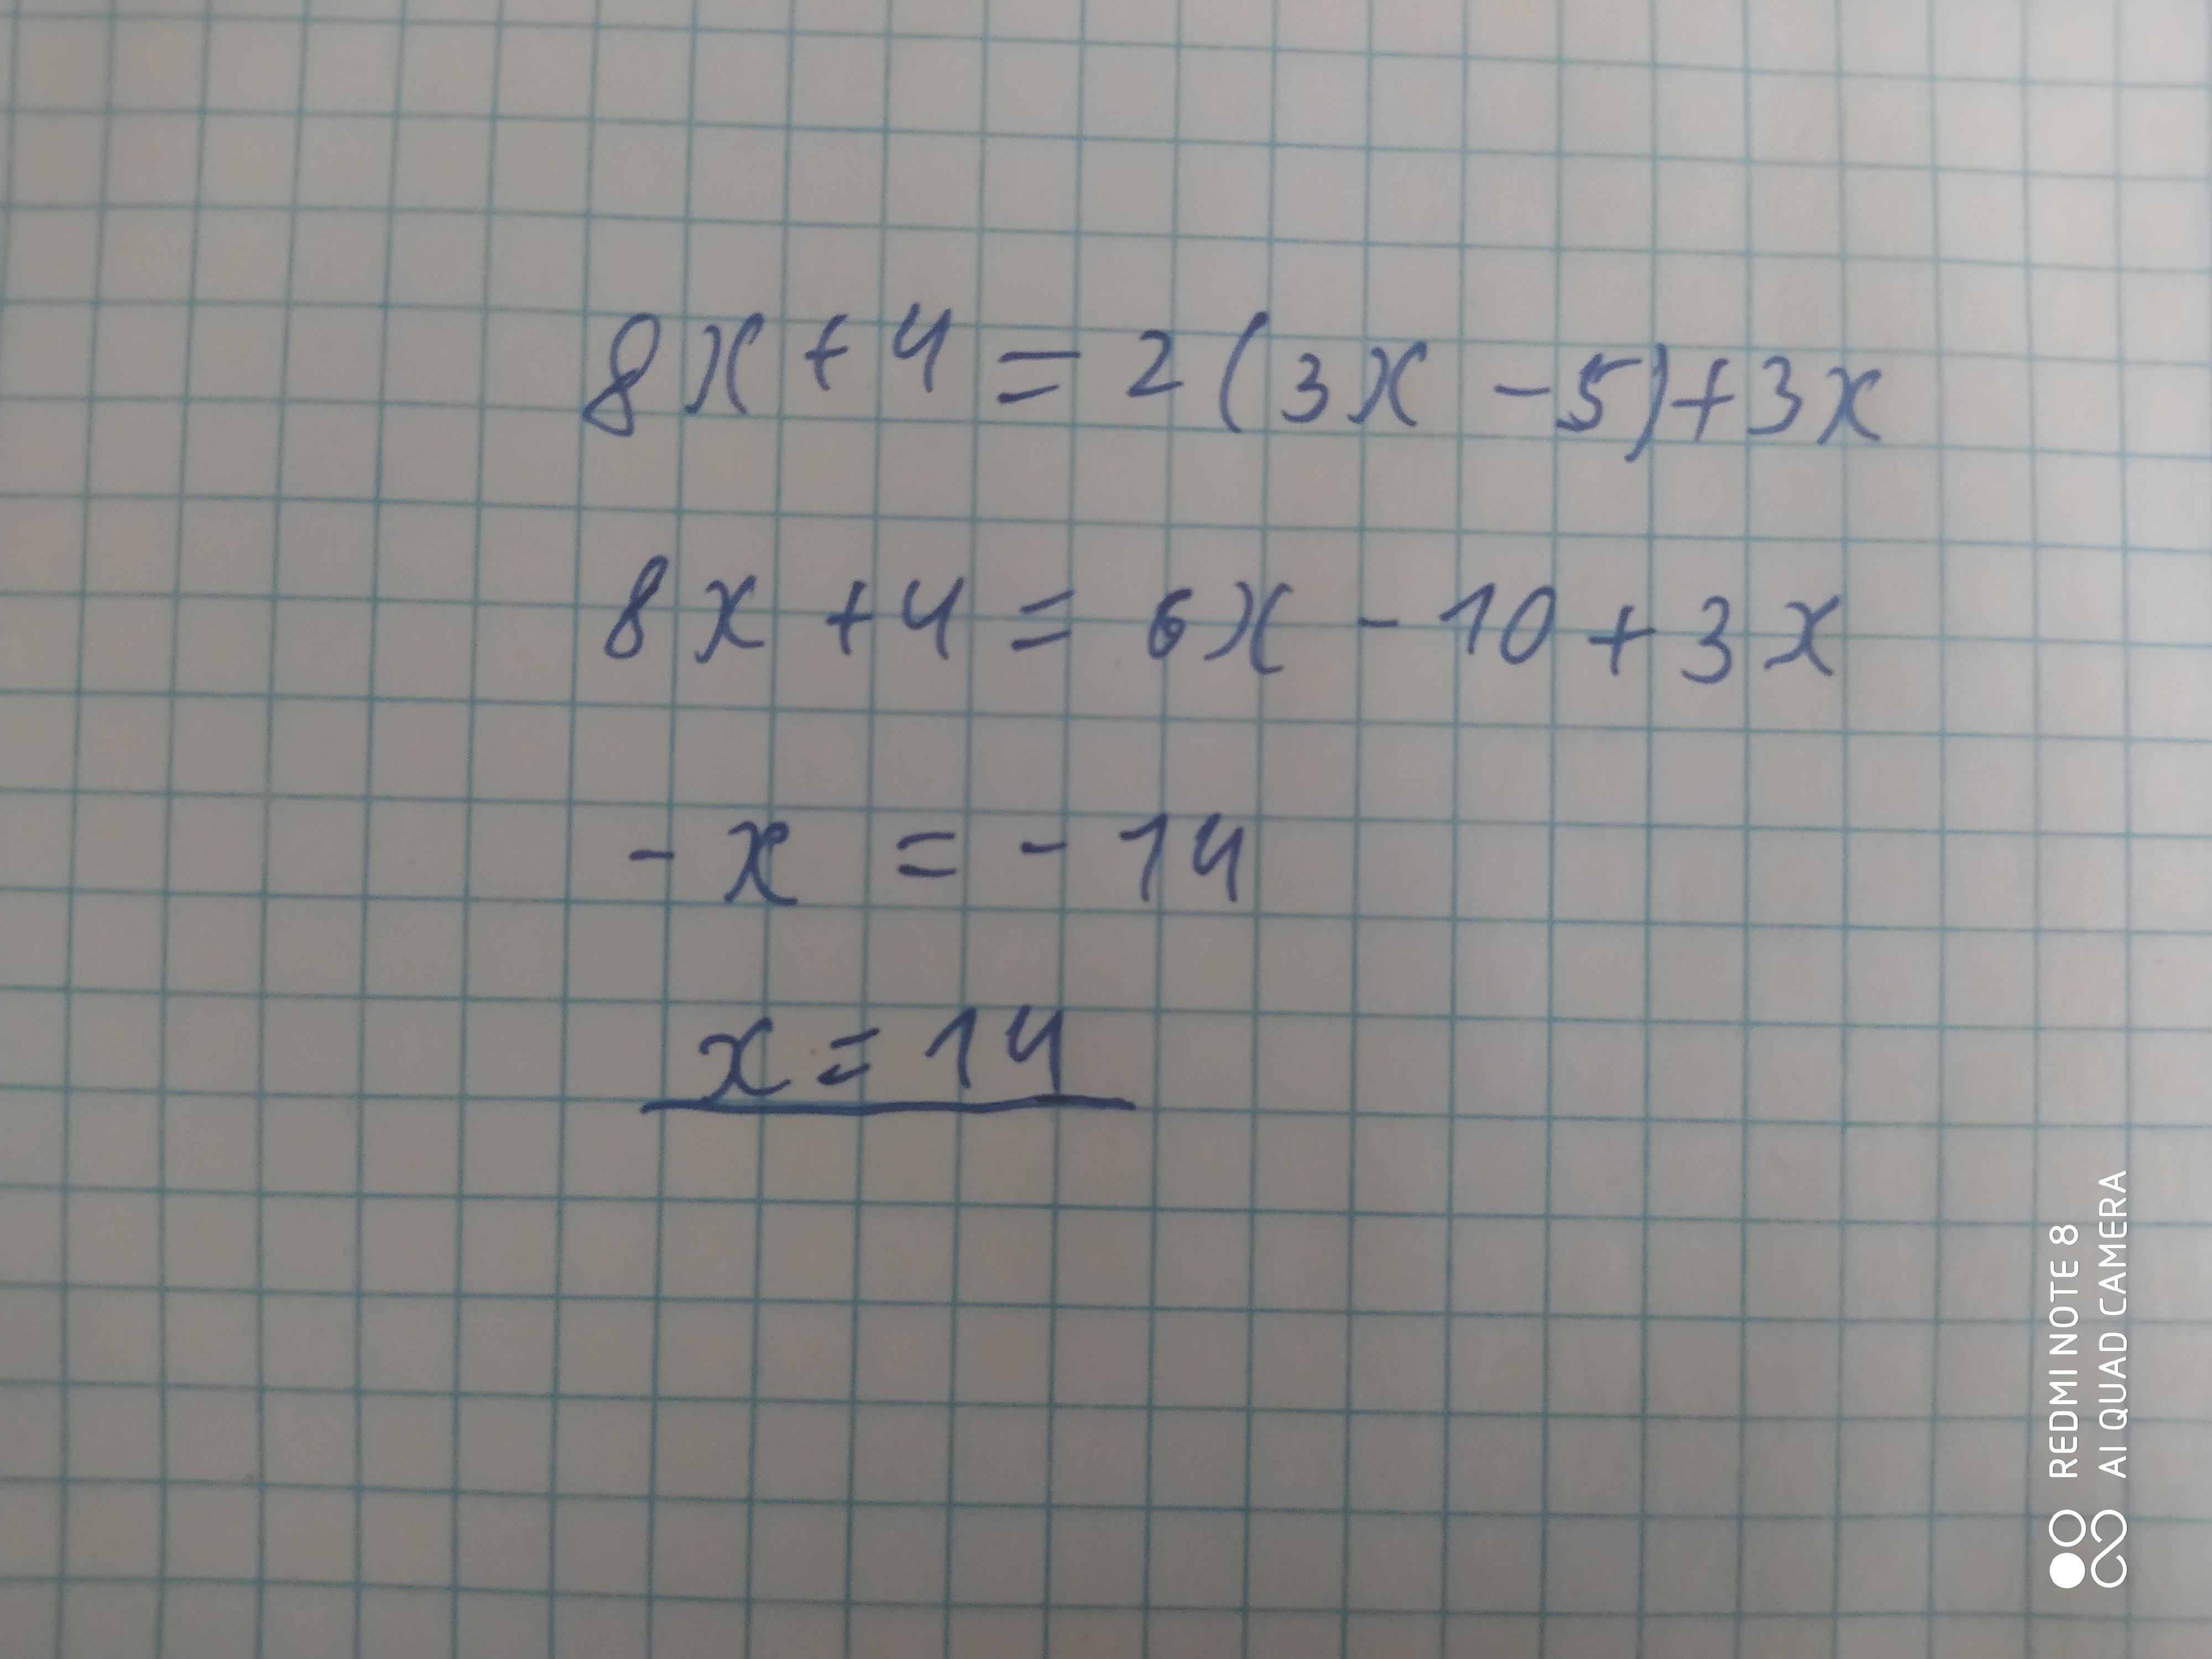 8x + 4 = 2(3x - 5) + 3x
8x + 4 = 6x - 10 + 3x
- x = - 14
x = 14
REDMI NOTE 8
AI QUAD CAMERA